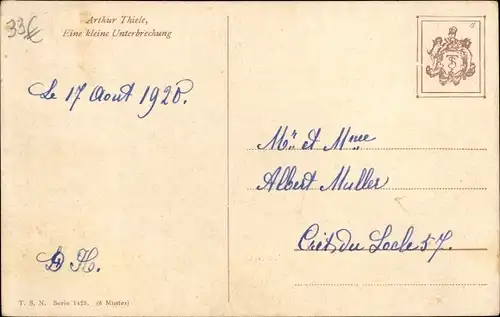 33€
Arthur Thiele,
Eine kleine Unterbrechung
Le 17 Aout 1920.
Mr. et Mme
Albert Muller
Crêt du Locle 57.
H.
T. S. N. Serie 1423. (6 Muster)